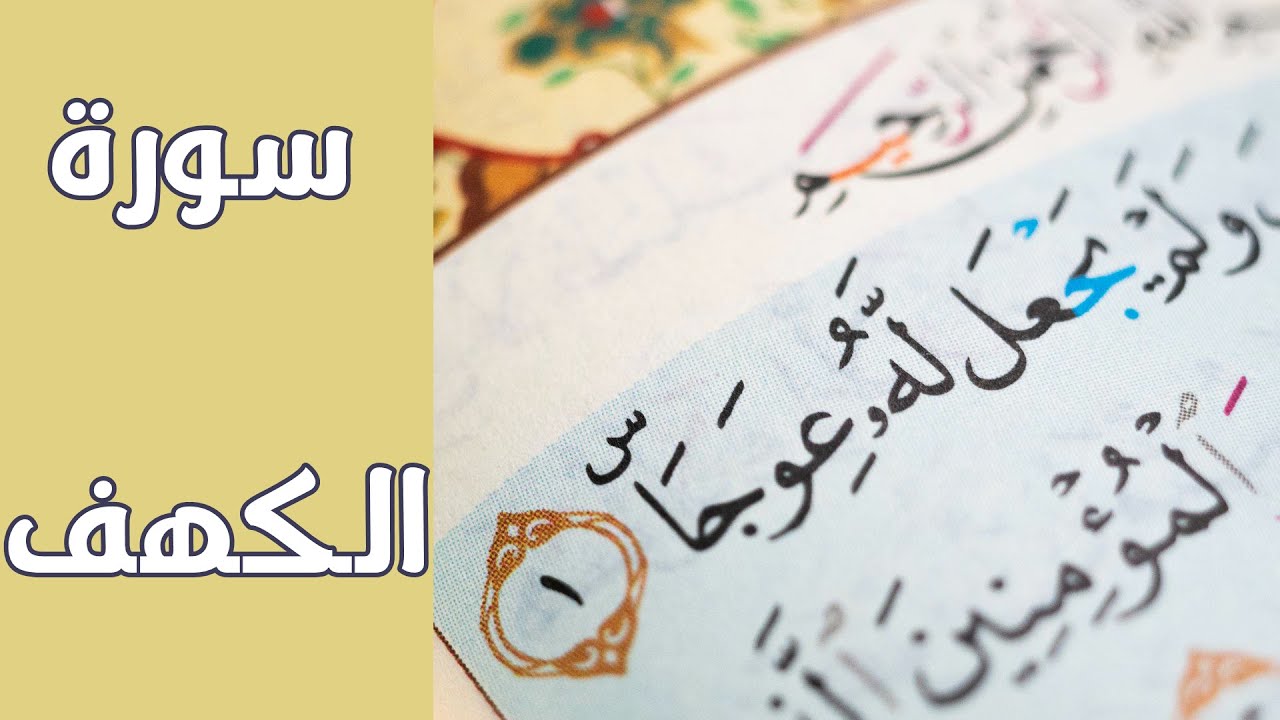 سورة
الكهف
ٱلرَّحِيمِ
وَلَمْ يَجْعَل لَّهُۥ عِوَجَاۜ ١
ٱلْمُؤْمِنِينَ